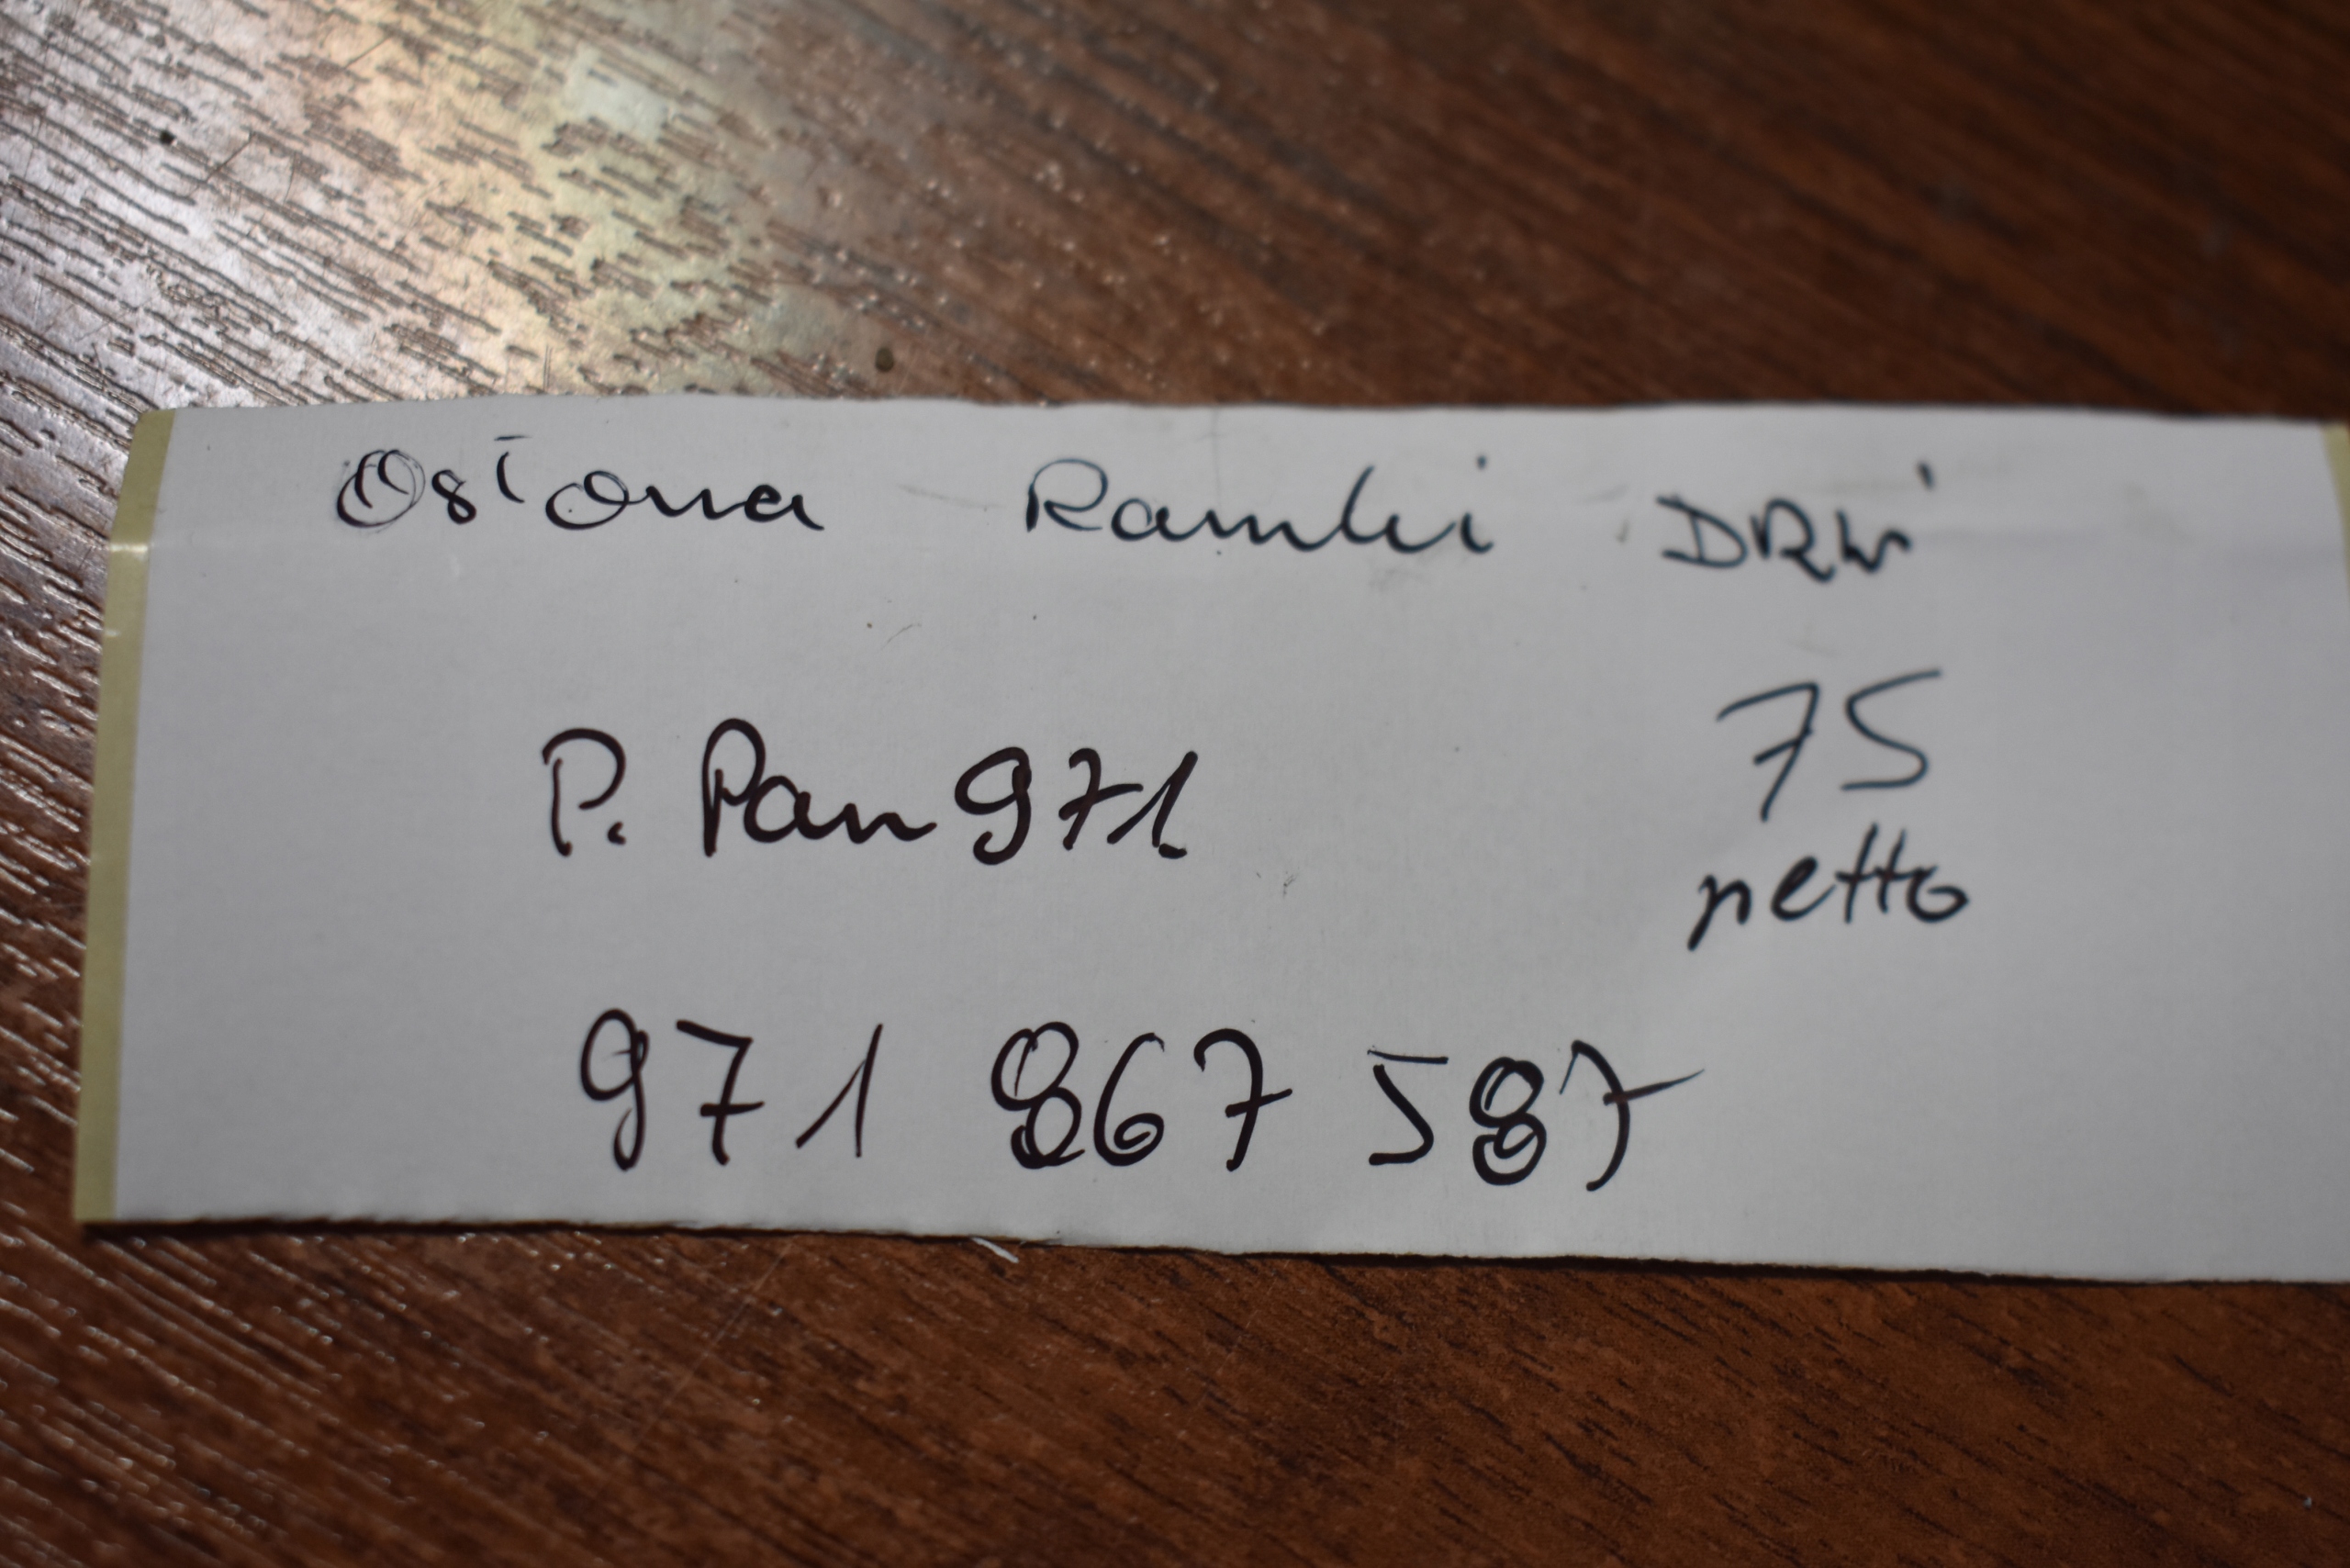 Osłona Ramki DRZWI
75
P. Pan 971.
netto
971 867 587